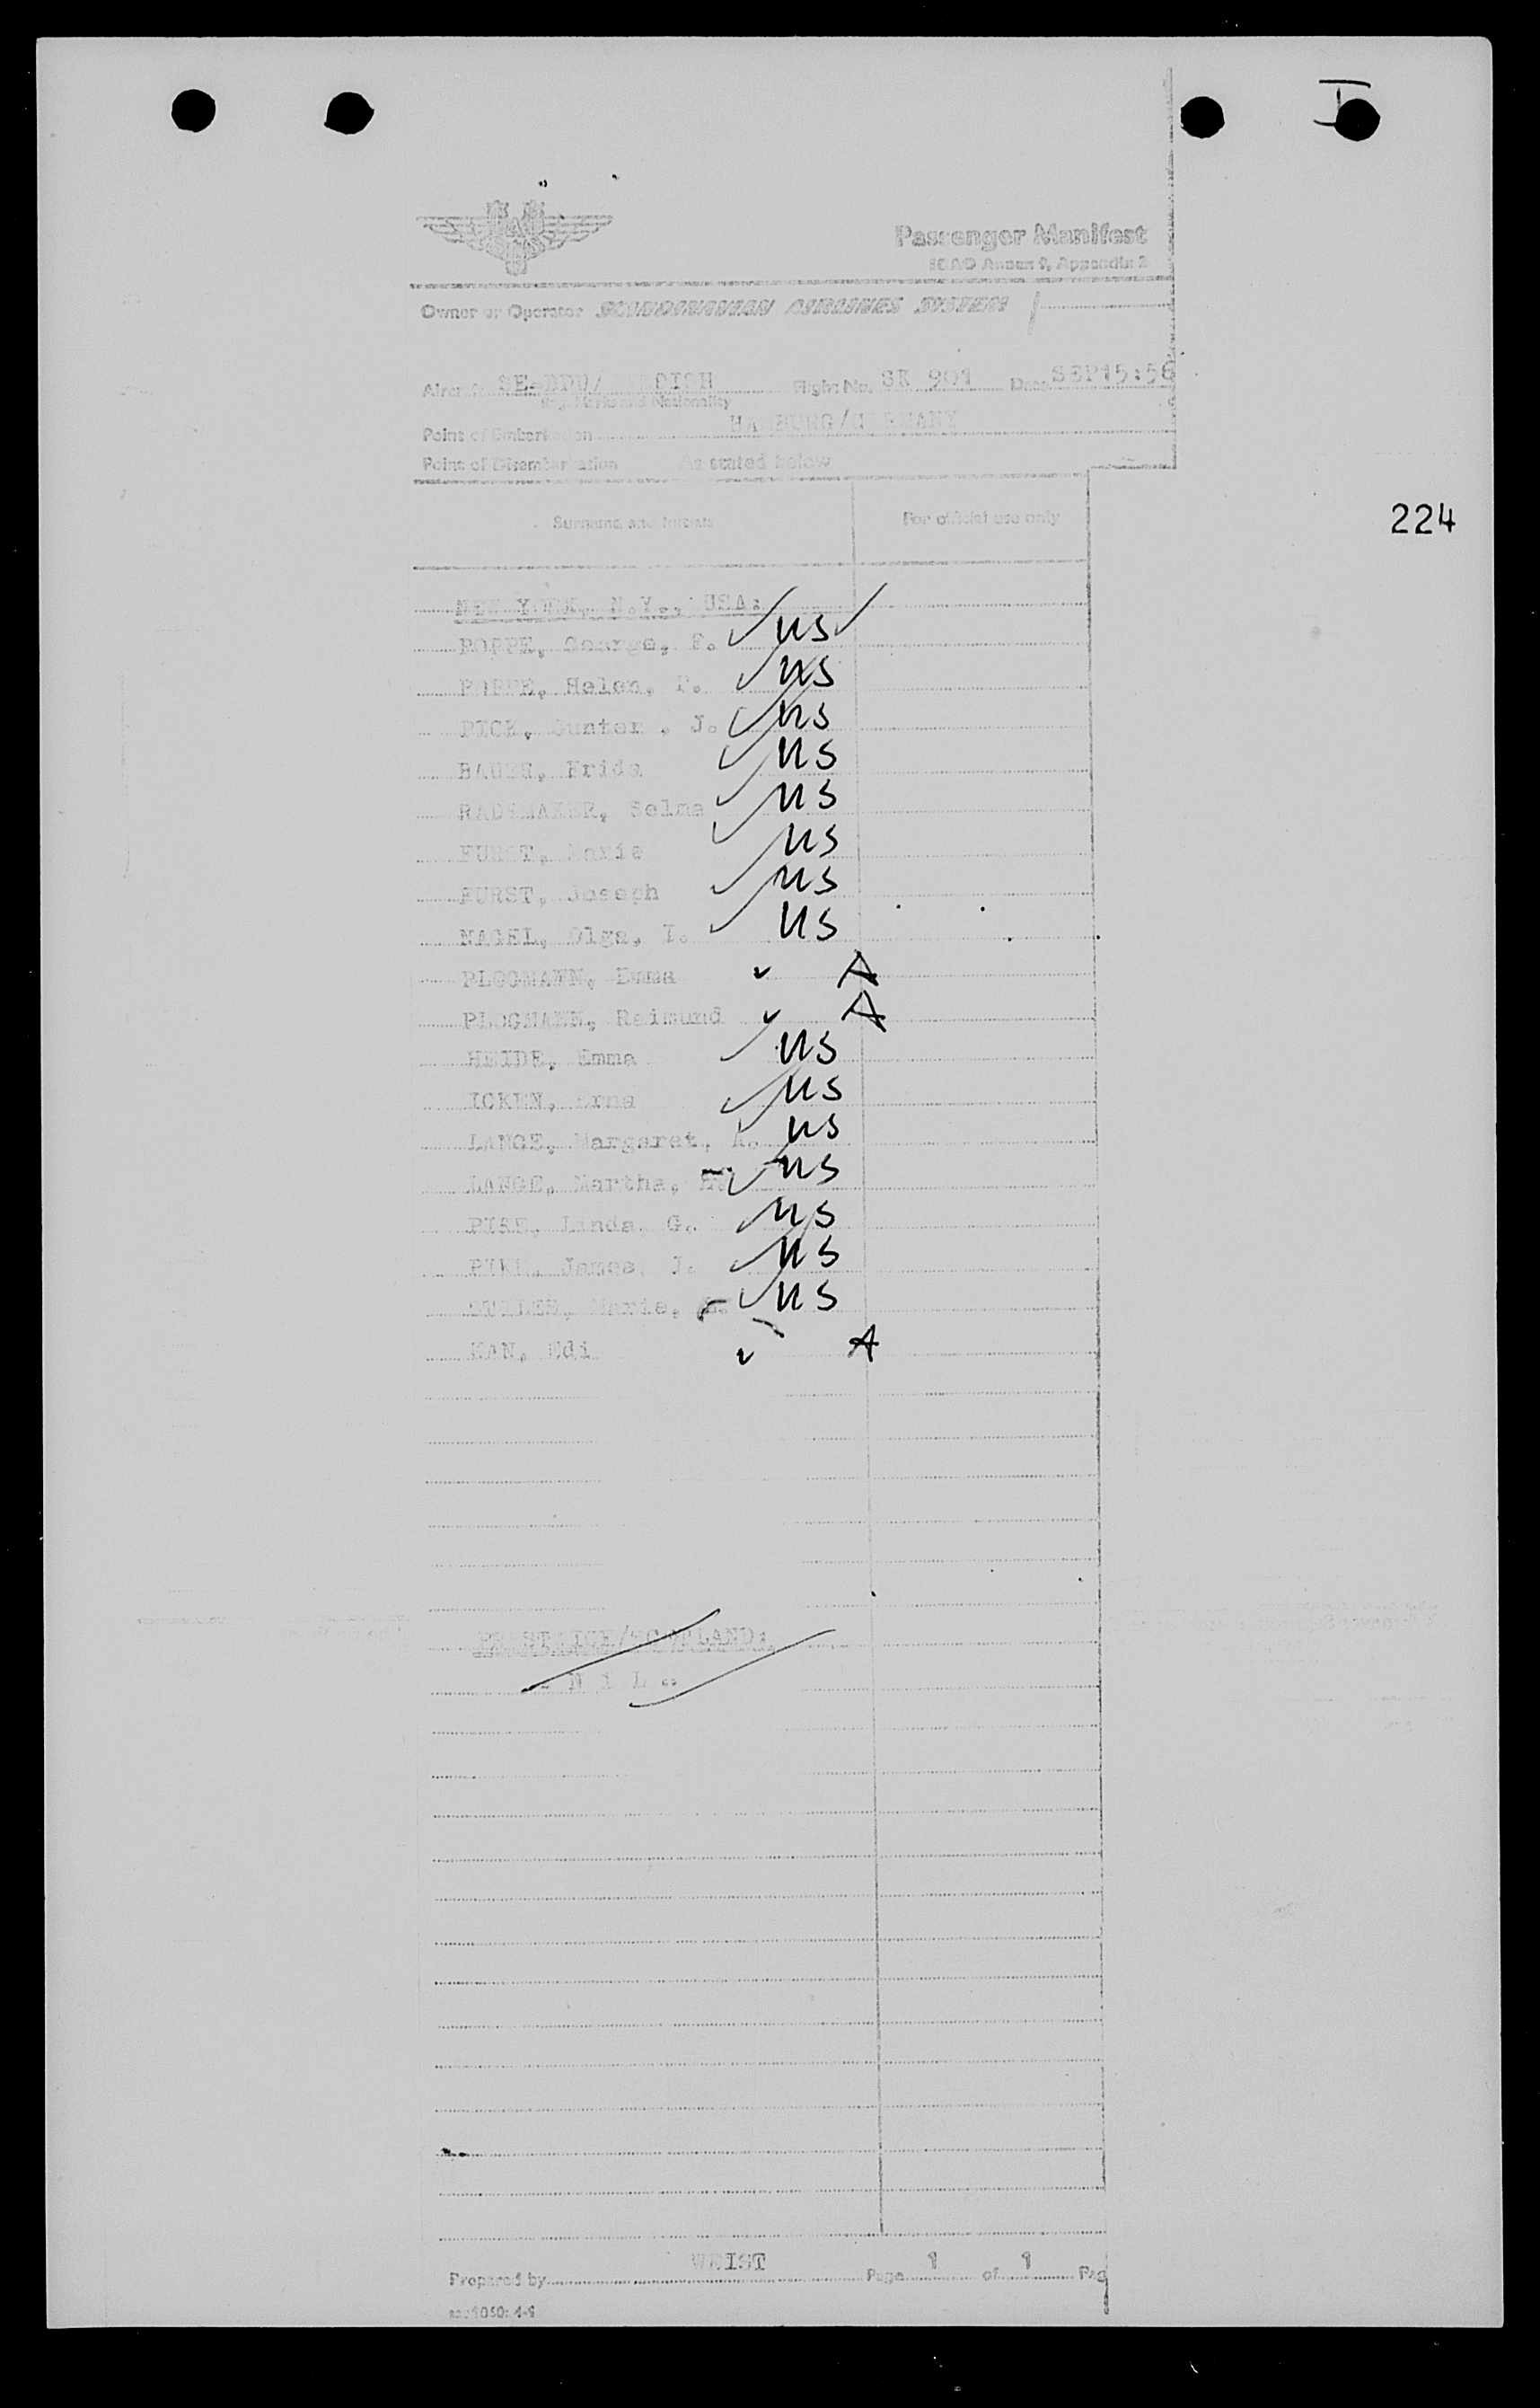 Passenger Manifest
ICAO Annex 9, Appendix 2
Owner or Operator SCANDINAVIAN AIRLINES SYSTEM
Flight No. SK 901 Date SEP15:56
Marks and Nationality
Point of Embarkation HAMBURG/GERMANY
Point of Disembarkation As stated below
Surname and Initials For official use only
224
NEW YORK, N.Y., USA:
George, P. US
Helen, P. US
Gunter, J. US
Frida US
RADEMAKER, Selma US
FURST, Marie US
FURST, Joseph US
NAGEL, Olga, I. US
PLOGMANN, Emma A
PLOGMANN, Reimund A
HEIDE, Emma US
ICKEN, Erna US
LANGE, Margaret, A. US
LANGE, Martha, US
Linda G. US
James J. US
Marie, US
KAN, Edi A
PRESTWICK/SCOTLAND:
- N i L -
Prepared by WEIST Page 1 of 1 Pag